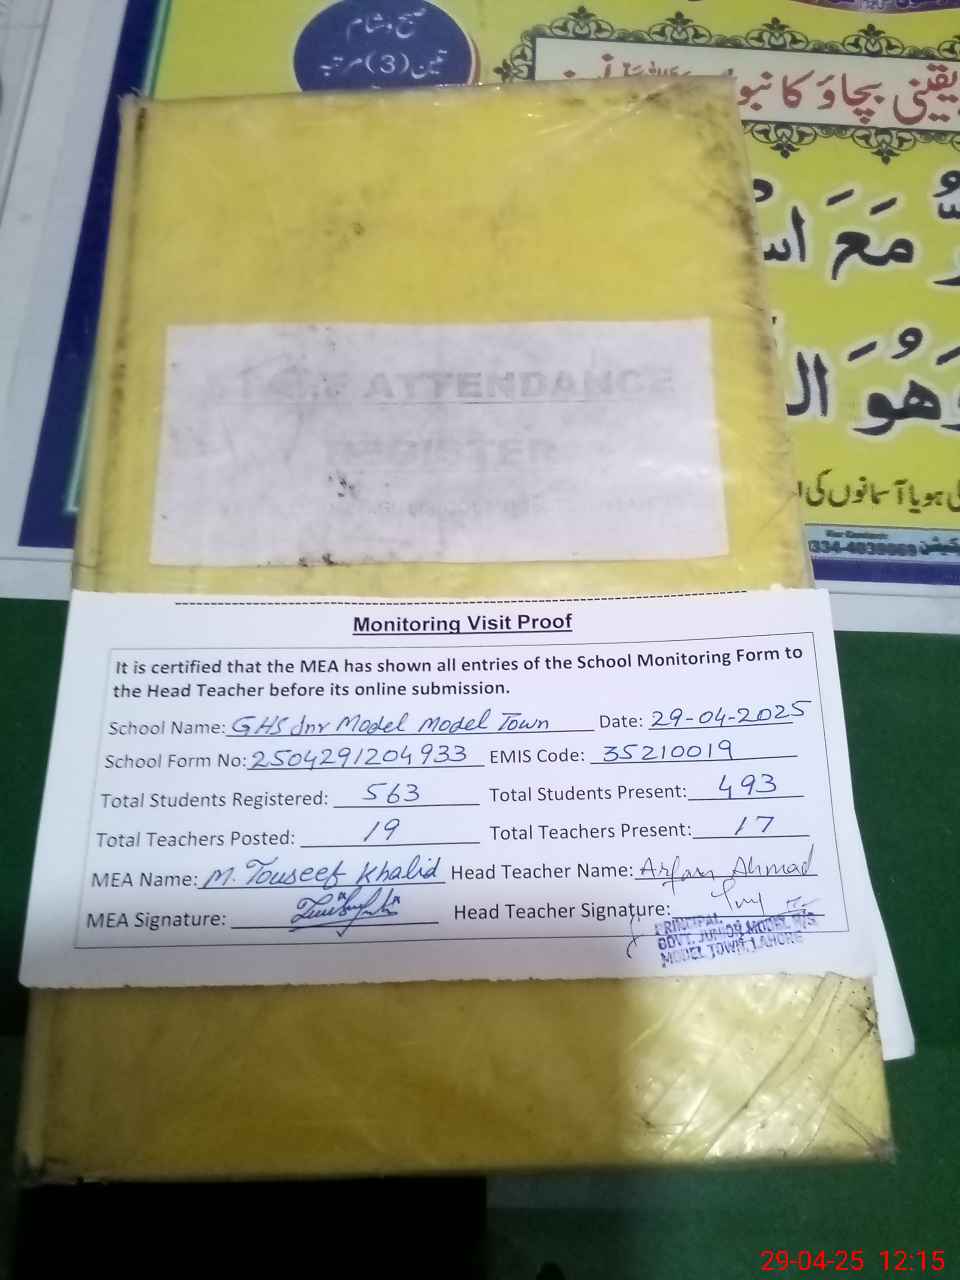 صبح و شام
تین (3) مرتبہ
یقینی بچاؤ کا
مَعَ
وَهُوَ
ہو یا آسمانوں کی
For Contact:
ATTENDANCE
REGISTER
Monitoring Visit Proof
It is certified that the MEA has shown all entries of the School Monitoring Form to
the Head Teacher before its online submission.
School Name: GHS Jnr Model Model Town Date: 29-04-2025
School Form No: 2504291204933 EMIS Code: 35210019
Total Students Registered: 563 Total Students Present: 493
Total Teachers Posted: 19 Total Teachers Present: 17
MEA Name: M. Touseef Khalid Head Teacher Name: Arfan Ahmad
MEA Signature: Head Teacher Signature:
PRINCIPAL
GOVT. JUNIOR MODEL H/S
MODEL TOWN, LAHORE
29-04-25 12:15